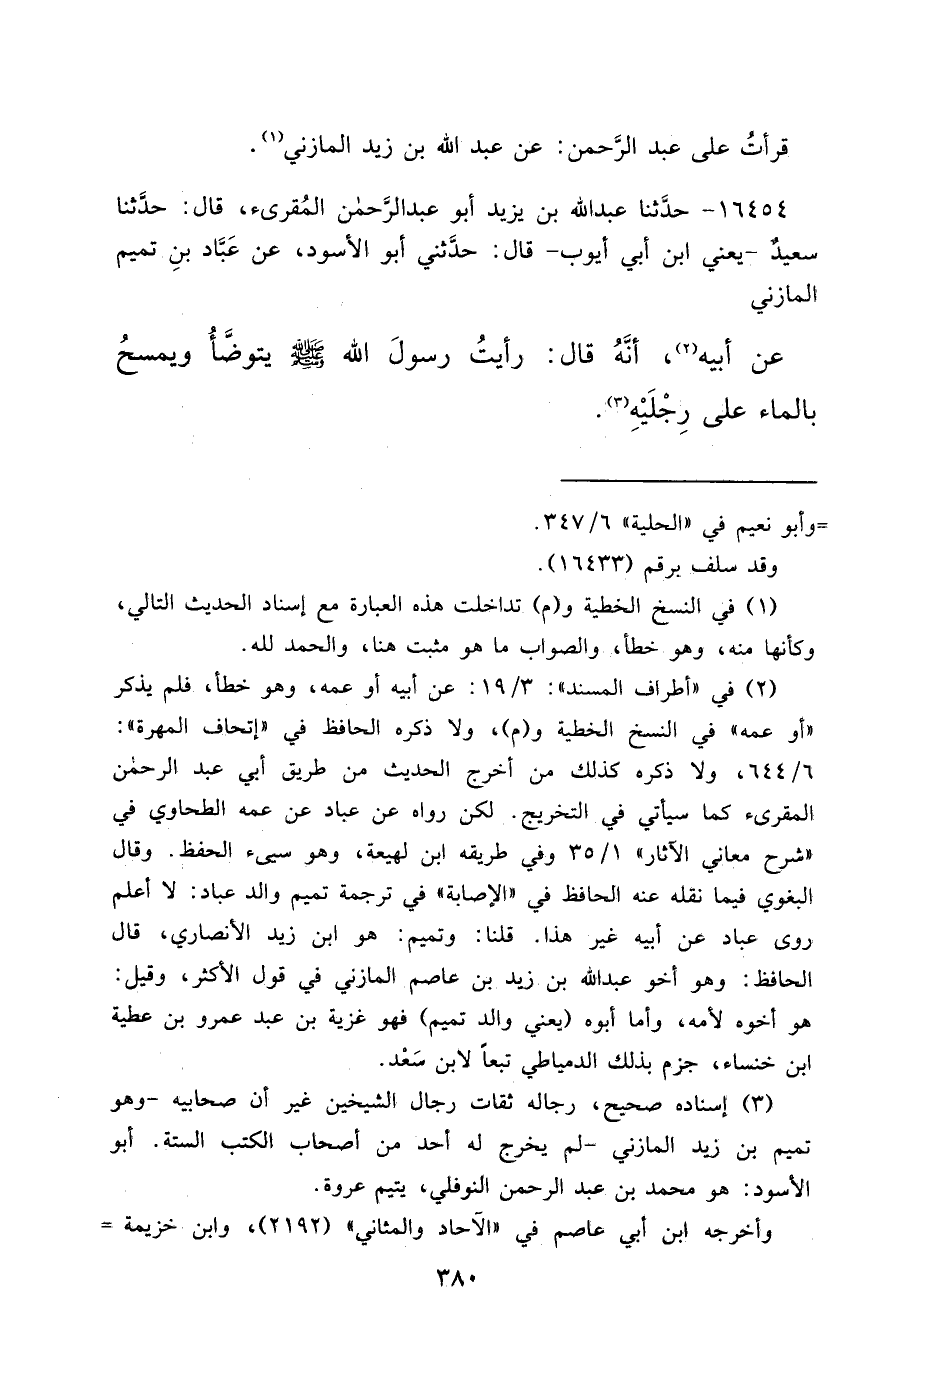 قرأتُ على عبد الرَّحمن: عن عبد الله بن زيد المازني(١).
١٦٤٥٤- حدَّثنا عبدالله بن يزيد أبو عبدالرَّحمٰن المُقرىء، قال: حدَّثنا
سعيدٌ -يعني ابن أبي أيوب- قال: حدَّثني أبو الأسود، عن عَبَّاد بنِ تميم
المازني
عن أبيه(٢)، أنَّهُ قال: رأيتُ رسولَ الله ﷺ يتوضَّأُ ويمسحُ
بالماء على رِجْلَيْهِ(٣).
=وأبو نعيم في «الحلية» ٣٤٧/٦.
وقد سلف برقم (١٦٤٣٣).
(١) في النسخ الخطية و(م) تداخلت هذه العبارة مع إسناد الحديث التالي،
وكأنها منه، وهو خطأ، والصواب ما هو مثبت هنا، والحمد لله.
(٢) في «أطراف المسند»: ١٩/٣: عن أبيه أو عمه، وهو خطأ، فلم يذكر
«أو عمه» في النسخ الخطية و(م)، ولا ذكره الحافظ في «إتحاف المهرة»:
٦٤٤/٦، ولا ذكره كذلك من أخرج الحديث من طريق أبي عبد الرحمٰن
المقرىء كما سيأتي في التخريج. لكن رواه عن عباد عن عمه الطحاوي في
«شرح معاني الآثار» ٣٥/١ وفي طريقه ابن لهيعة، وهو سيىء الحفظ. وقال
البغوي فيما نقله عنه الحافظ في «الإصابة» في ترجمة تميم والد عباد: لا أعلم
روى عباد عن أبيه غير هذا. قلنا: وتميم: هو ابن زيد الأنصاري، قال
الحافظ: وهو أخو عبدالله بن زيد بن عاصم المازني في قول الأكثر، وقيل:
هو أخوه لأمه، وأما أبوه (يعني والد تميم) فهو غزية بن عبد عمرو بن عطية
ابن خنساء، جزم بذلك الدمياطي تبعاً لابن سَعْد.
(٣) إسناده صحيح، رجاله ثقات رجال الشيخين غير أن صحابيه -وهو
تميم بن زيد المازني -لم يخرج له أحد من أصحاب الكتب الستة. أبو
الأسود: هو محمد بن عبد الرحمن النوفلي، يتيم عروة.
وأخرجه ابن أبي عاصم في «الآحاد والمثاني» (٢١٩٢)، وابن خزيمة =
٣٨٠